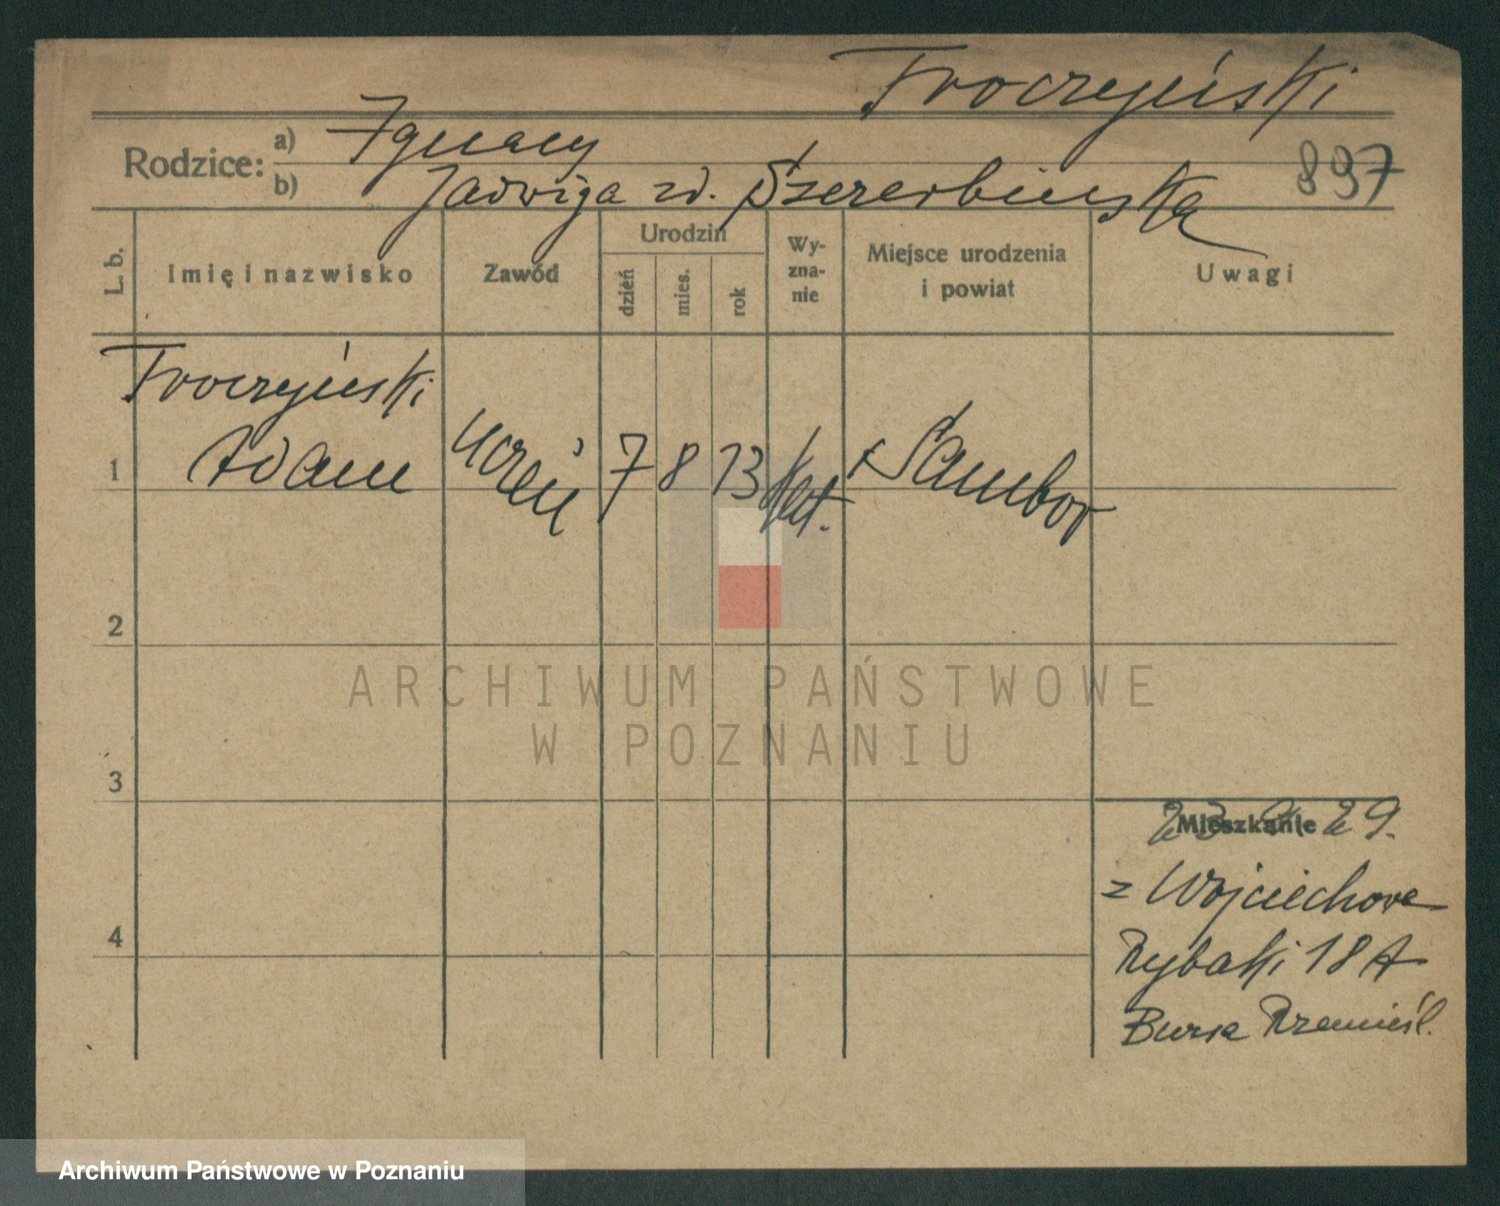 Troczyński
Rodzice: a) Ignacy
b) Jadwiga zd. Szczerbińska
897
L. b.
Imię i nazwisko
Zawód
Urodzin
dzień
mies.
rok
Wy-
zna-
nie
Miejsce urodzenia
i powiat
Uwagi
Troczyński
1 Adam uczeń 7 8 13 kat. Sambor
2
ARCHIWUM PAŃSTWOWE
W POZNANIU
3
Mieszkanie
29.
z Wojciechowa
4
Rybaki 18 A
Bursa Rzemieśl.
Archiwum Państwowe w Poznaniu